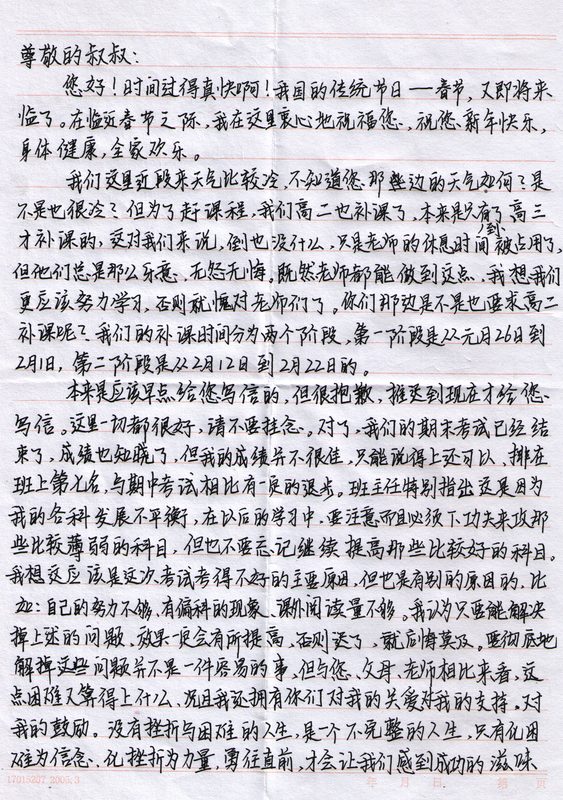 尊敬的叔叔：
您好！时间过得真快啊！我国的传统节日——春节，又即将来
临了。在临近春节之际，我在这里衷心地祝福您，祝您新年快乐，
身体健康，全家欢乐。
我们这里近段来天气比较冷，不知道您那些边的天气如何？是
不是也很冷？但为了赶课程，我们高二也补课了，本来是只有了高三
才补课的，这对我们来说，倒也没什么，只是老师的休息时间却被占用了，
但他们总是那么乐意，无怨无悔。既然老师都能做到这点，我想我们
更应该努力学习，否则就愧对老师们了。你们那边是不是也要求高二
补课呢？我们的补课时间分为两个阶段，第一阶段是从元月26日到
2月1日，第二阶段是从2月12日到2月22日的。
本来是应该早点给您写信的，但很抱歉，推迟到现在才给您
写信。这里一切都很好，请不要挂念。对了，我们的期末考试已经结
束了，成绩也知晓了，但我的成绩并不很佳，只能说得上还可以，排在
班上第七名，与期中考试相比有一定的退步。班主任特别指出这是因为
我的各科发展不平衡，在以后的学习中，要注意而且必须下功夫来攻那
些比较薄弱的科目，但也不要忘记继续提高那些比较好的科目。
我想这应该是这次考试考得不好的主要原因，但也是有别的原因的，比
如：自己的努力不够、有偏科的现象、课外阅读量不够。我认为只要能解决
掉上述的问题，效果一定会有所提高，否则迟了，就后悔莫及。要彻底地
解掉这些问题并不是一件容易的事，但与您、父母、老师相比来看，这
点困难又算得上什么，况且我还拥有你们对我的关爱对我的支持。对
我的鼓励。没有挫折与困难的人生，是一个不完整的人生，只有化困
难为信念，化挫折为力量，勇往直前，才会让我们感到成功的滋味
17015207 2005.3 年 月 日 第 页